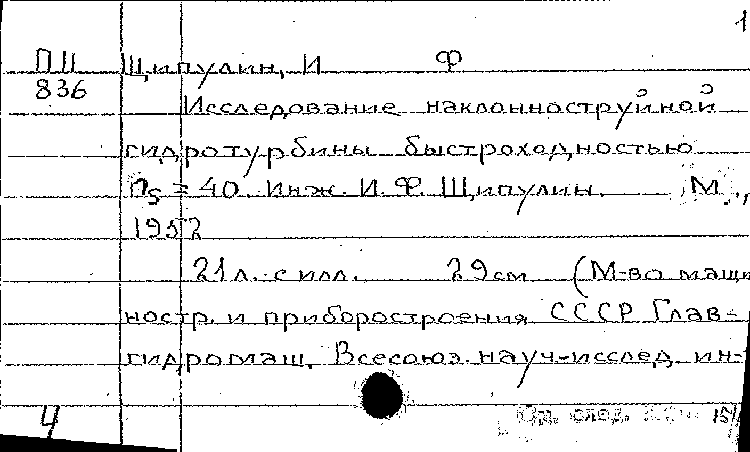 1
ПII Щипулин, И Ф
836
Исследование наклонноструйной
гидротурбины быстроходностью
ns = 40. Инж. И. Ф. Щипулин. М.,
1952
21 л. с илл. 29 см (М-во маши
ностр. и приборостроения СССР Глав-
гидромаш. Всесоюз. науч-исслед. ин-
4 след. 15/